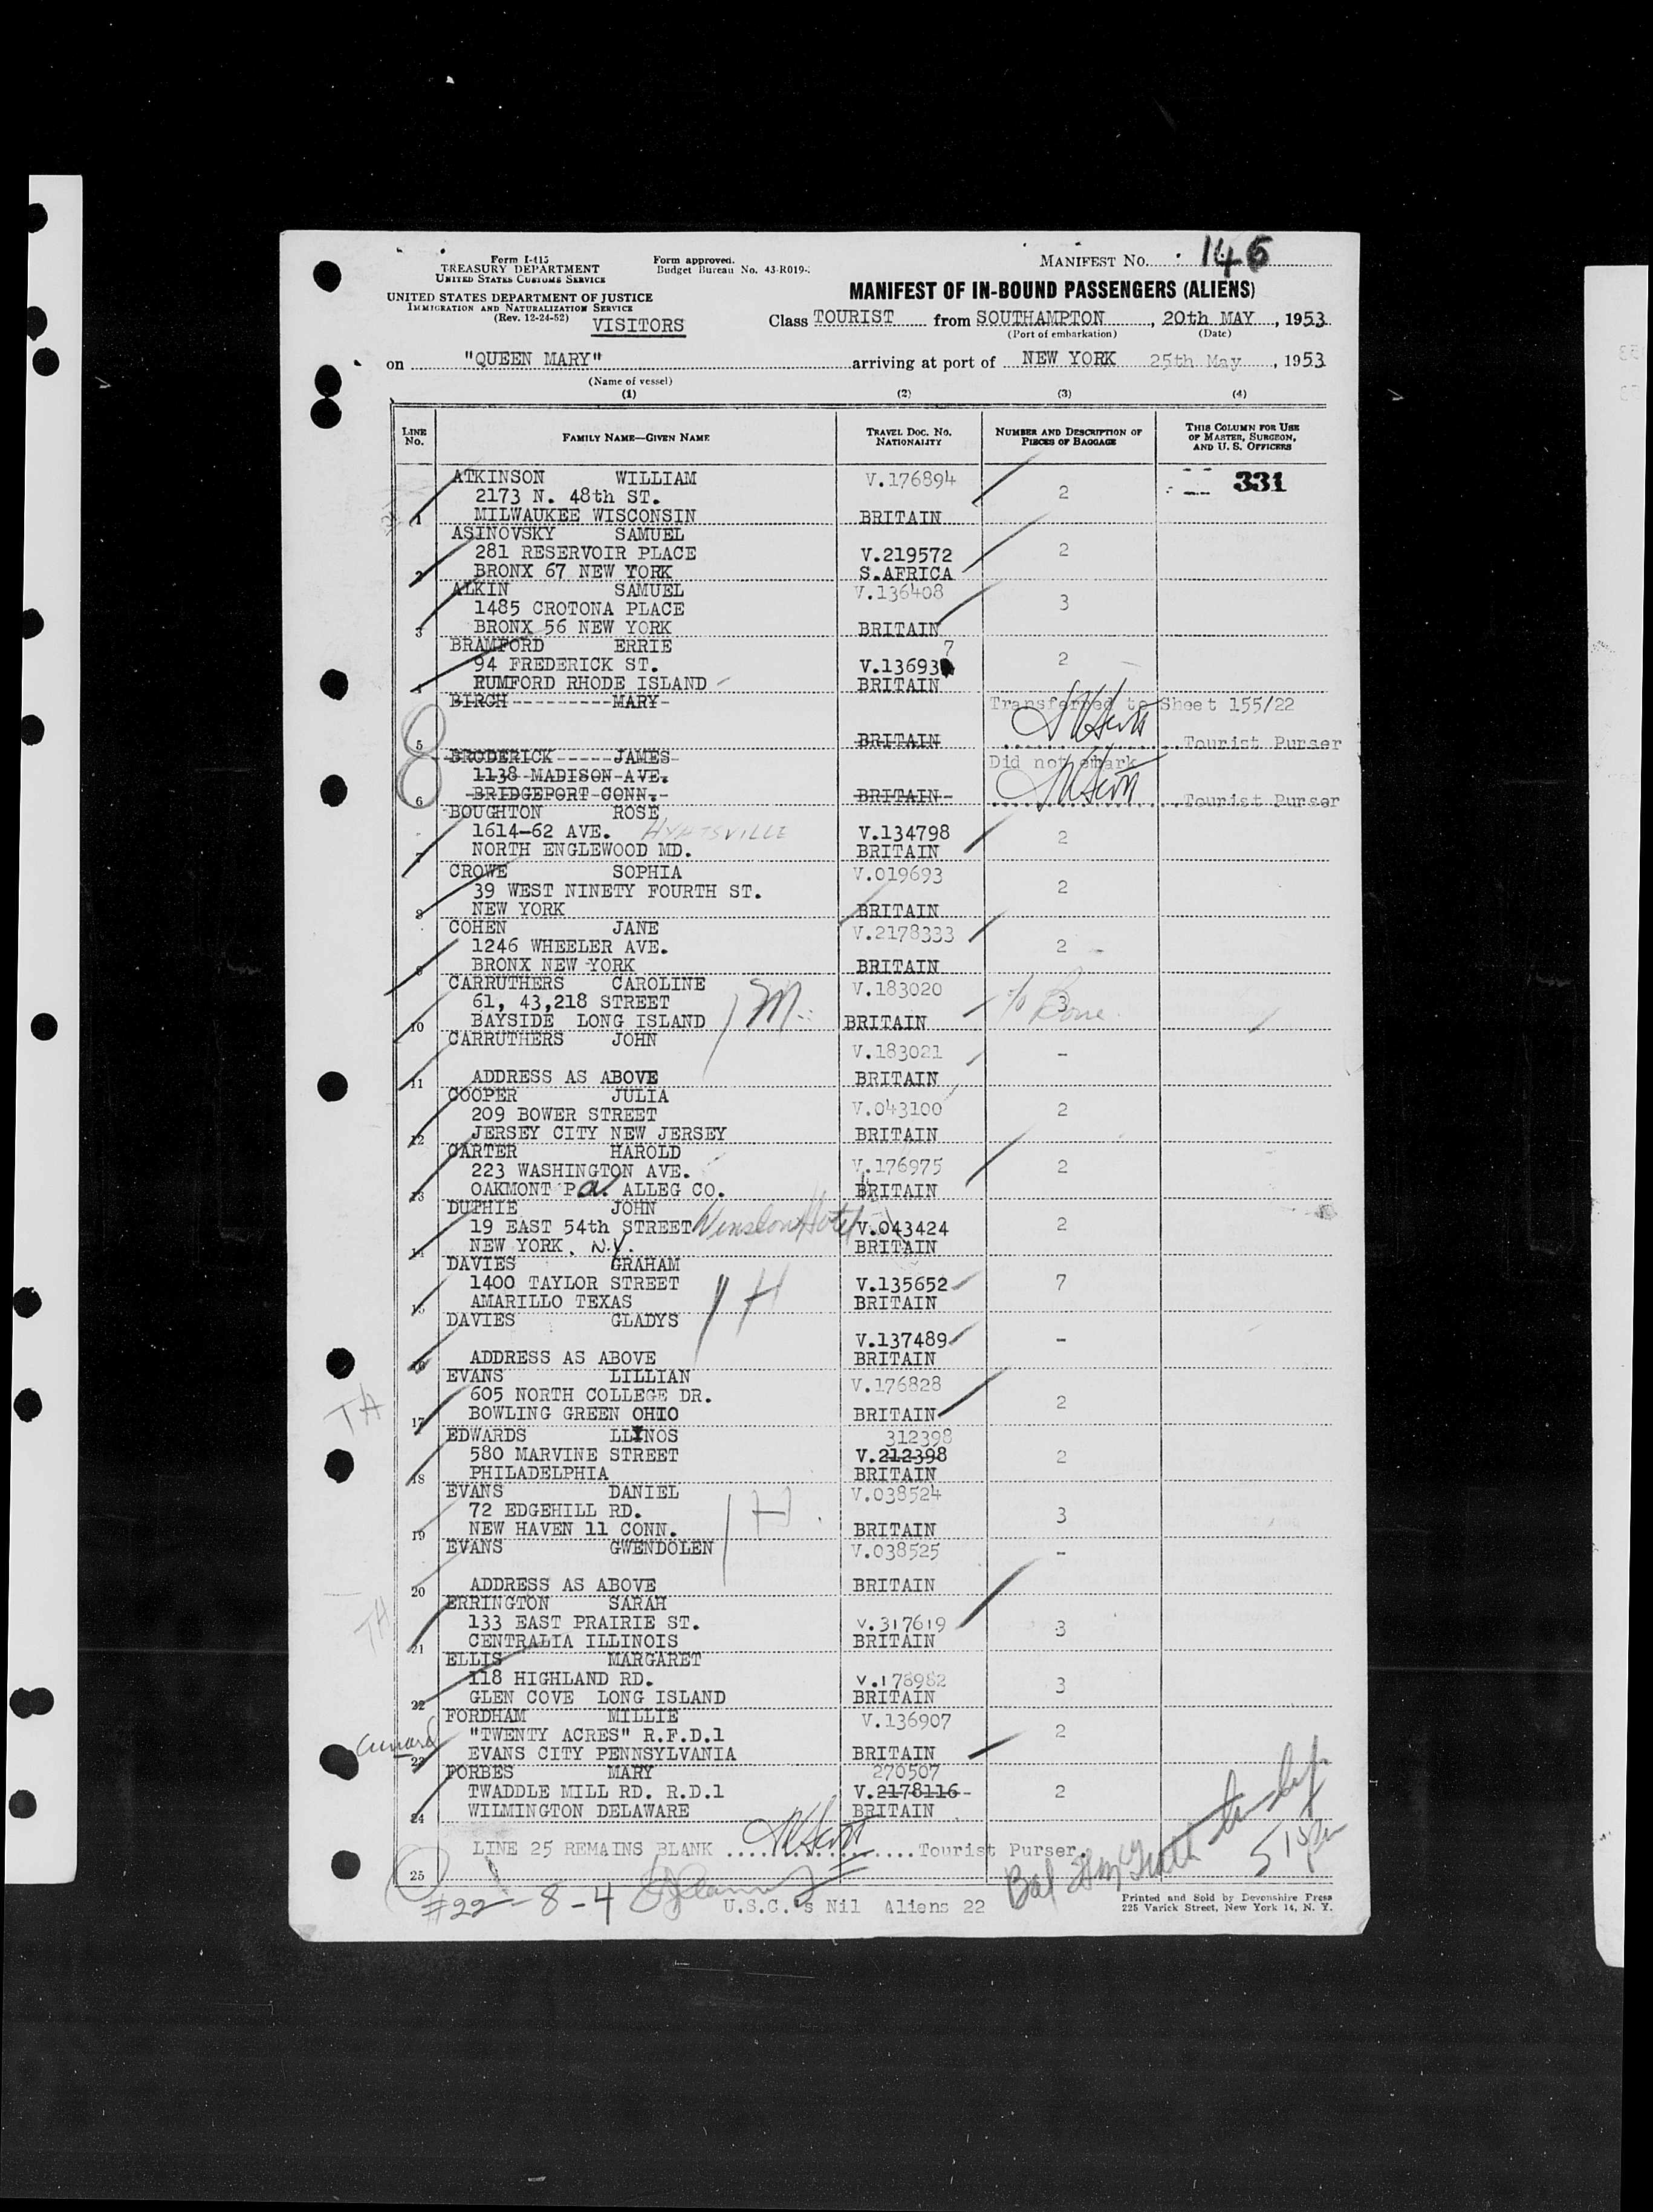 Form I-415
TREASURY DEPARTMENT
UNITED STATES CUSTOMS SERVICE
Form approved.
Budget Bureau No. 43-R019-
MANIFEST NO. 146
UNITED STATES DEPARTMENT OF JUSTICE
IMMIGRATION AND NATURALIZATION SERVICE
(Rev. 12-24-52)
VISITORS
MANIFEST OF IN-BOUND PASSENGERS (ALIENS)
Class TOURIST from SOUTHAMPTON, 20th MAY, 1953
(Port of embarkation) (Date)
on "QUEEN MARY" arriving at port of NEW YORK 25th May, 1953
(Name of vessel)
(1) (2) (3) (4)
LINE No. FAMILY NAME—GIVEN NAME TRAVEL DOC. NO. NATIONALITY NUMBER AND DESCRIPTION OF PIECES OF BAGGAGE THIS COLUMN FOR USE OF MASTER, SURGEON, AND U. S. OFFICERS
ATKINSON WILLIAM V.176894 2 331
2173 N. 48th ST.
1 MILWAUKEE WISCONSIN BRITAIN
ASINOVSKY SAMUEL 2
281 RESERVOIR PLACE V.219572
2 BRONX 67 NEW YORK S.AFRICA
ALKIN SAMUEL V.136408 3
1485 CROTONA PLACE
3 BRONX 56 NEW YORK BRITAIN
BRAMFORD ERRIE 7
94 FREDERICK ST. V.13693 2
4 RUMFORD RHODE ISLAND BRITAIN
BIRCH MARY Transferred to Sheet 155/22
5 BRITAIN Tourist Purser
BRODERICK JAMES Did not embark
1138 MADISON AVE.
6 BRIDGEPORT CONN. BRITAIN Tourist Purser
BOUGHTON ROSE
1614-62 AVE. HYATSVILLE V.134798 2
7 NORTH ENGLEWOOD MD. BRITAIN
CROWE SOPHIA V.019693
39 WEST NINETY FOURTH ST. 2
8 NEW YORK BRITAIN
COHEN JANE V.2178333
1246 WHEELER AVE. 2
9 BRONX NEW YORK BRITAIN
CARRUTHERS CAROLINE V.183020
61, 43,218 STREET M. 3
10 BAYSIDE LONG ISLAND BRITAIN
CARRUTHERS JOHN
V.183021 -
11 ADDRESS AS ABOVE BRITAIN
COOPER JULIA
209 BOWER STREET V.043100 2
12 JERSEY CITY NEW JERSEY BRITAIN
CARTER HAROLD
223 WASHINGTON AVE. V.176975 2
13 OAKMONT Pa. ALLEG CO. BRITAIN
DUTHIE JOHN
19 EAST 54th STREET Winslow Hotel V.043424 2
14 NEW YORK, N.Y. BRITAIN
DAVIES GRAHAM
1400 TAYLOR STREET H V.135652 7
15 AMARILLO TEXAS BRITAIN
DAVIES GLADYS
V.137489 -
16 ADDRESS AS ABOVE BRITAIN
EVANS LILLIAN V.176828
TH 605 NORTH COLLEGE DR. 2
17 BOWLING GREEN OHIO BRITAIN
EDWARDS LLYNOS 312398
580 MARVINE STREET V.212398 2
18 PHILADELPHIA BRITAIN
EVANS DANIEL V.038524
72 EDGEHILL RD. H 3
19 NEW HAVEN 11 CONN. BRITAIN
EVANS GWENDOLEN V.038525 -
20 ADDRESS AS ABOVE BRITAIN
ERRINGTON SARAH
TH 133 EAST PRAIRIE ST. V.317619 3
21 CENTRALIA ILLINOIS BRITAIN
ELLIS MARGARET
118 HIGHLAND RD. V.178982 3
22 GLEN COVE LONG ISLAND BRITAIN
FORDHAM MILLIE V.136907
Cunard "TWENTY ACRES" R.F.D.1 2
23 EVANS CITY PENNSYLVANIA BRITAIN
FORBES MARY 270507
TWADDLE MILL RD. R.D.1 V.2178116 2
24 WILMINGTON DELAWARE BRITAIN
LINE 25 REMAINS BLANK Tourist Purser.
25
#22-8-4 U.S.C.'s Nil Aliens 22
Printed and Sold by Devonshire Press
225 Varick Street, New York 14, N. Y.